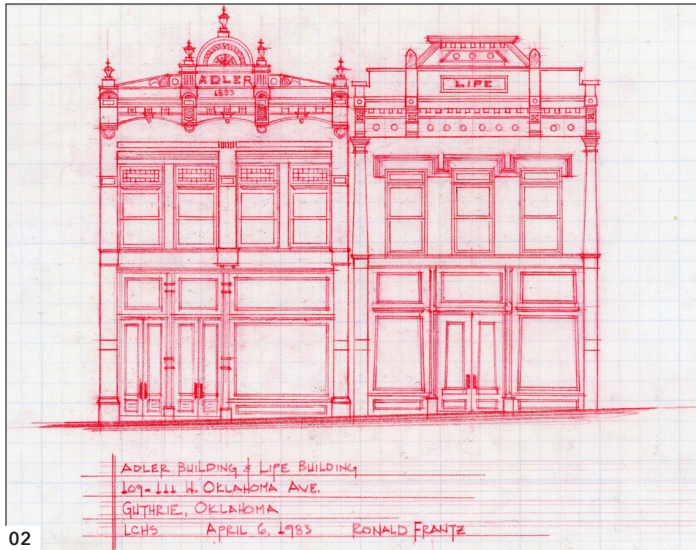 ADLER
1893
LIPE
ADLER BUILDING & LIPE BUILDING
109-111 W. OKLAHOMA AVE.
GUTHRIE, OKLAHOMA
LCHS APRIL 6, 1983 RONALD FRANTZ
02